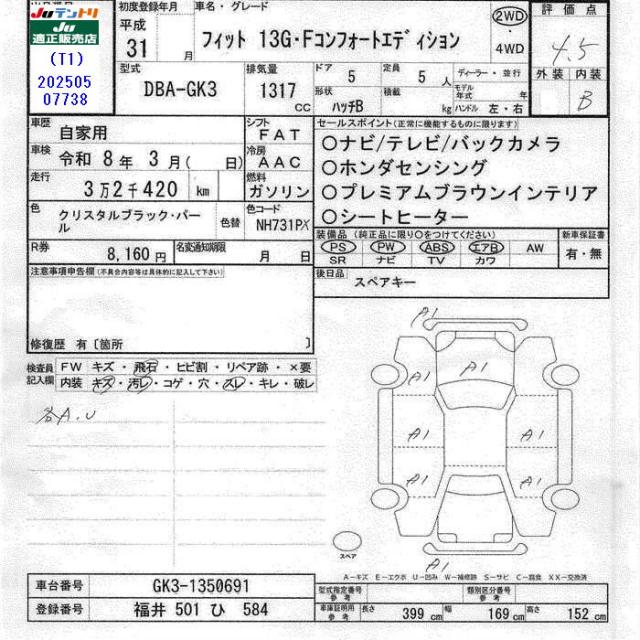 Juテントリ
Ju
適正販売店
(T1)
202505
07738
初度登録年月
平成
31 月
車名・グレード
フィット 13G・Fコンフォートエディション
2WD
・
4WD
評価点
4.5
外装 内装
B
型式
DBA-GK3
排気量
1317
cc
ドア 5
定員 5 人
ディーラー・並行
形状
ハッチB
積載
kg
モデル年式 年
ハンドル 左・右
車歴
自家用
シフト
FAT
車検
令和 8年 3月( 日)
冷房
AAC
走行
3万2千420 km
燃料
ガソリン
色
クリスタルブラック・パール
色替
色コード
NH731PX
R券
8,160円
名変通知期限
月 日
セールスポイント(正常に機能するものに限ります)
○ナビ/テレビ/バックカメラ
○ホンダセンシング
○プレミアムブラウンインテリア
○シートヒーター
装備品(純正品に限り○をつけてください)
PS PW ABS エアB AW
SR ナビ TV カワ
新車保証書
有・無
後日品
スペアキー
注意事項申告欄(不具合内容等は具体的に記入して下さい)
修復歴 有〔箇所 〕
検査員
記入欄
FW キズ・飛石・ヒビ割・リペア跡・×要
内装 キズ・汚レ・コゲ・穴・スレ・キレ・破レ
各A.U
A1
A1
A1
A1
A1
A1
A1
A1
スペア
A-キズ E-エクボ U-凹み W-補修跡 S-サビ C-腐食 XX-交換済
車台番号
GK3-1350691
登録番号
福井 501 ひ 584
型式指定番号
参考
類別区分番号
参考
車庫証明用
参考
長さ 399 cm
幅 169 cm
高さ 152 cm